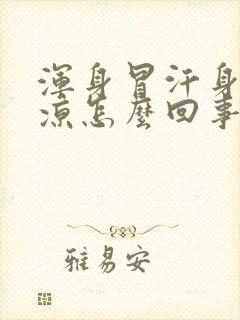 渾身冒汗身
涼怎麼回事
雅易安